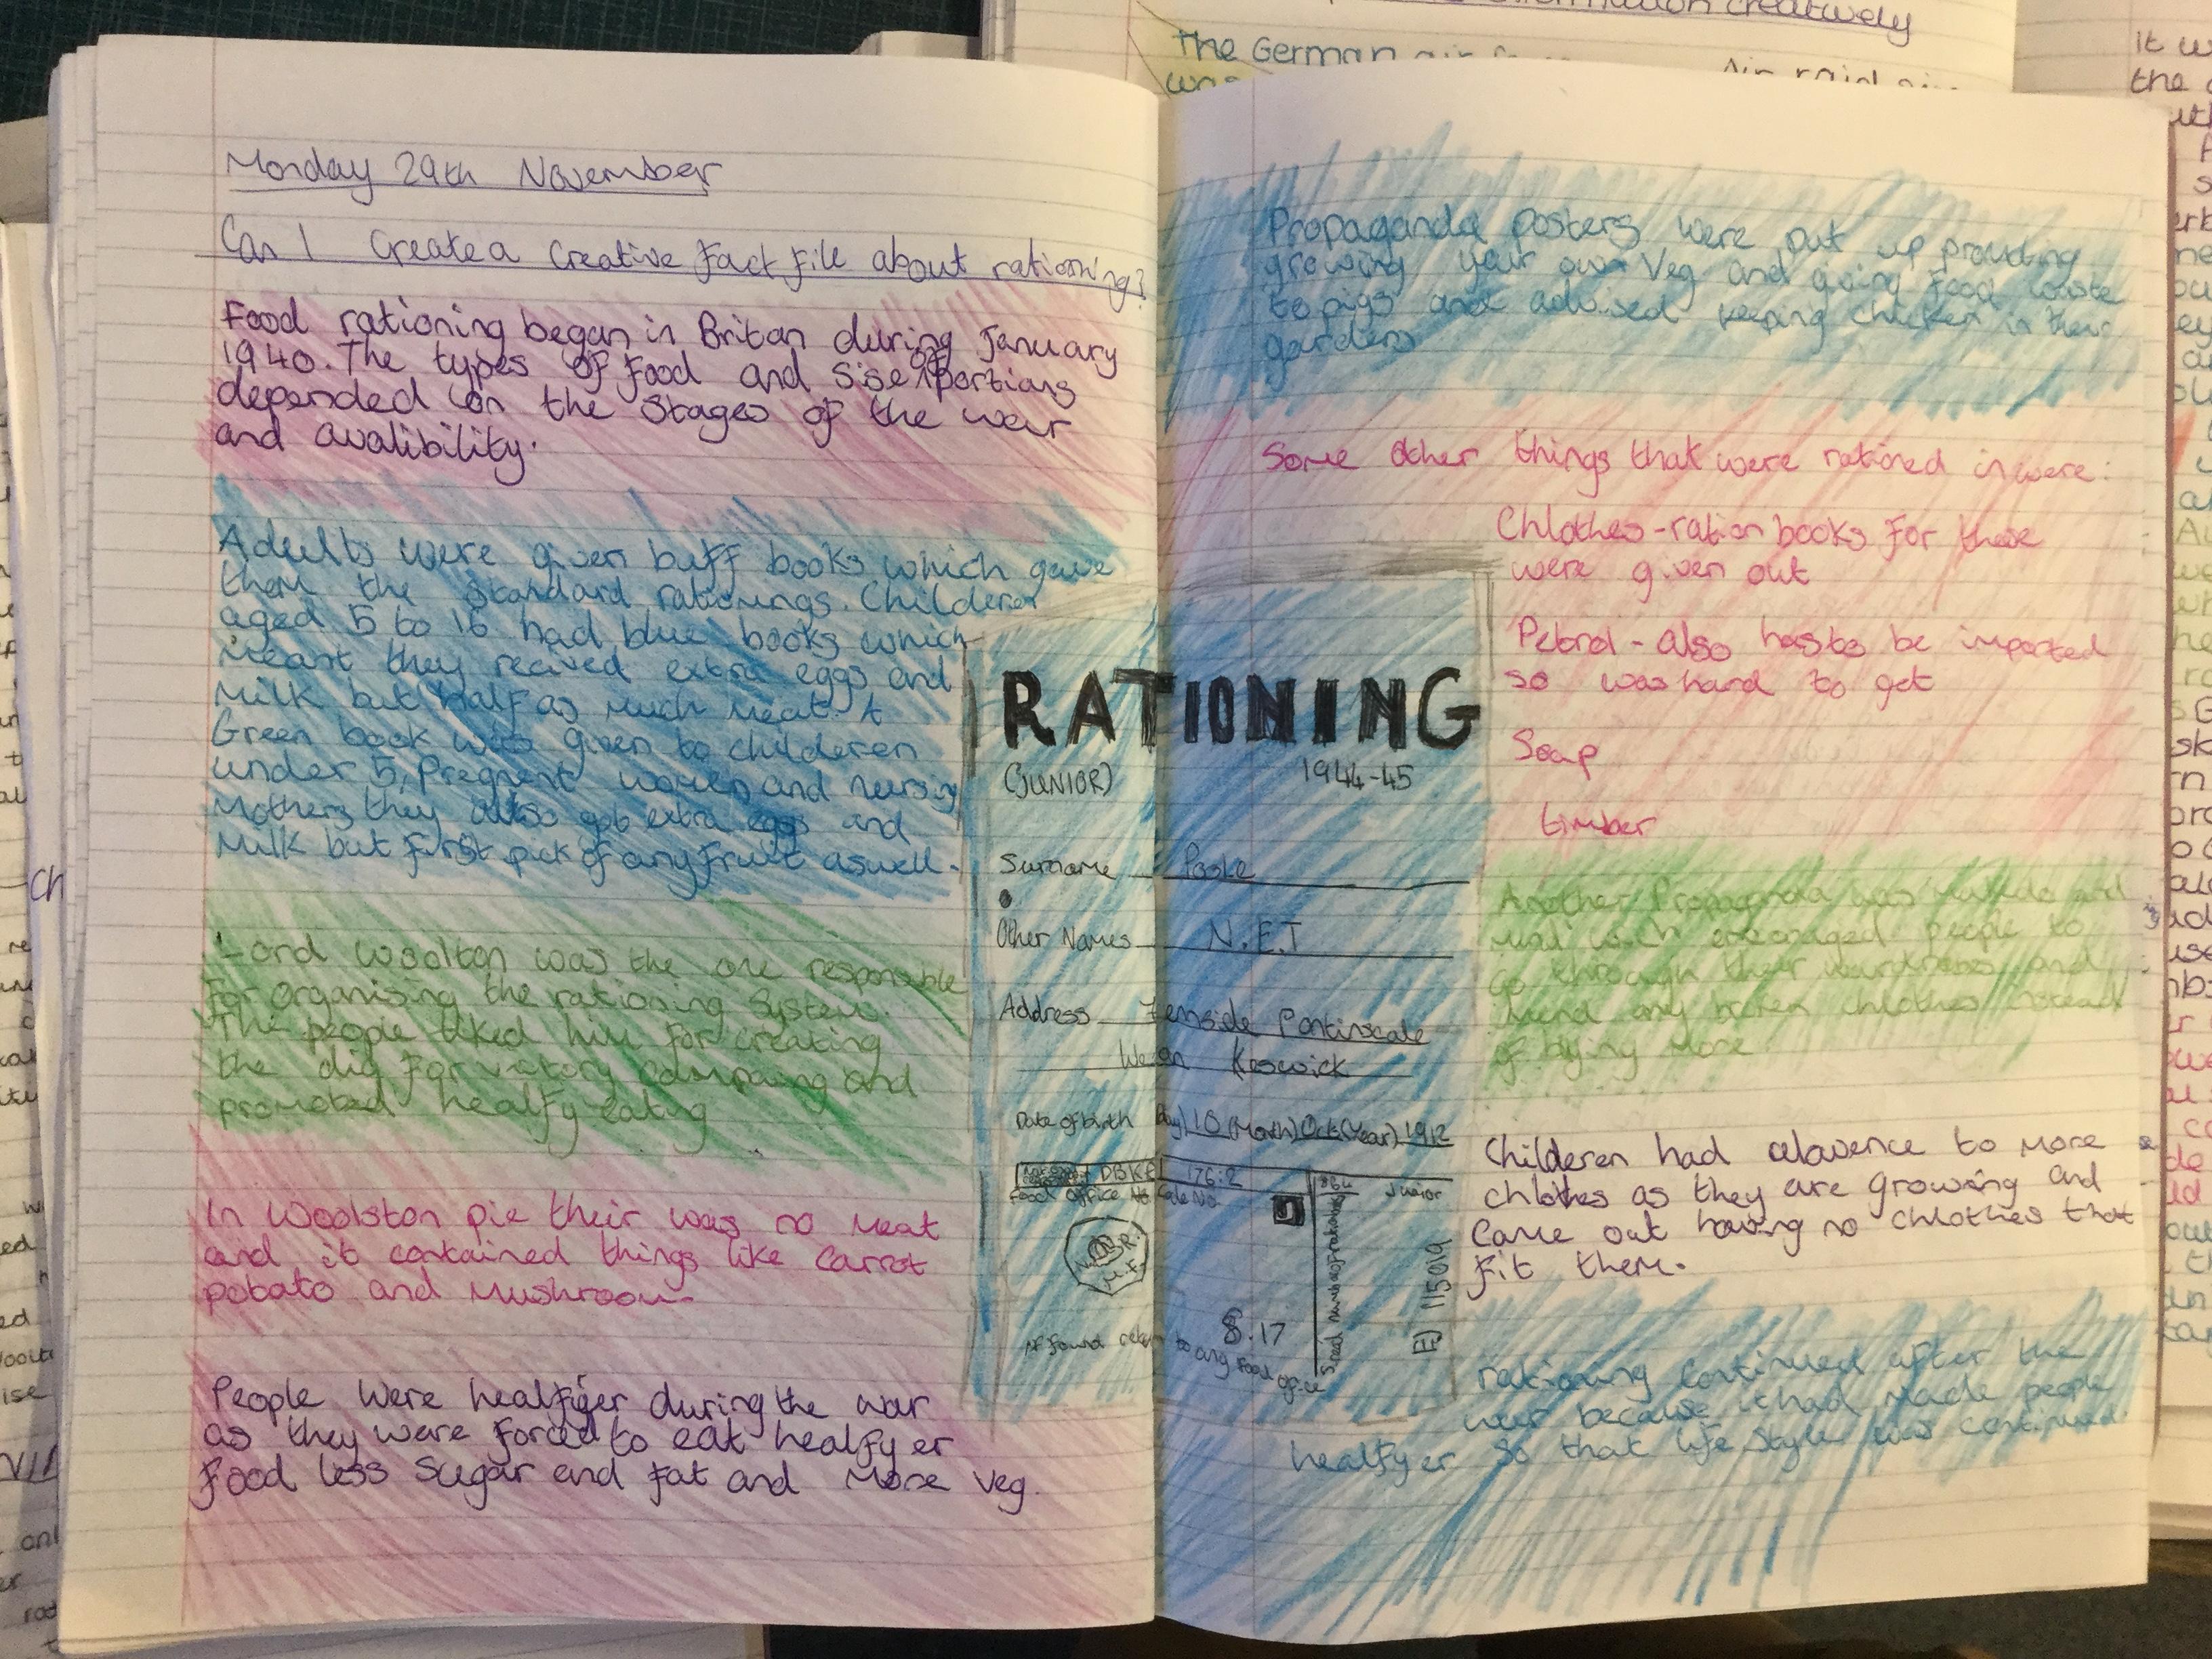 Monday 29th November
Can I Create a Creative Fact File about rationing?
Food rationing began in Britan during January
1940. The types of food and sise of portions
depended on the stages of the war
and avalibility.
Adults were given buff books which gave
them the standard rationings. Childeren
aged 5 to 16 had blue books which
meant they recived extra eggs and
Milk but half as much meat. A
Green book was given to childeren
under 5, Pregnent women and nursing
Mothers they also got extra eggs and
Milk but first pick of any fruit aswell.
Lord Woolton was the one responsible
for organising the rationing System.
The people liked him for creating
the dig for victory and
promoted healfy eating
In Woolston pie their was no Meat
and it contained things like Carrot
potato and Mushroom.
People were healfyer during the war
as they were forced to eat healfyer
Food less Sugar and fat and More Veg.
RATIONING
(JUNIOR)
1944-45
Surname
Other Names N.E.T
Address Portinscale
Keswick
Date of birth (Day) 10 (Month) Oct (Year) 1912
DBKE 176:2
Food Office Code No.
Junior
8.17
If found return to any Food office
Propaganda posters were put up
growing your own Veg and giving Food waste
to pigs and advised keeping chicken in their
gardens
Some other things that were rationed in were:
Chlothes - ration books for these
were given out
Petrol - also has to be imported
so was hard to get
Soap
timber
Another Propaganda was makedo and
people to
go through their and
mend any chlothes instead
of More
Childeren had alowence to More
chlothes as they are growing and
Came out having no chlothes that
fit them.
rationing Continued after the
war because it had Made people
healfyer so that life Style was continued
The German